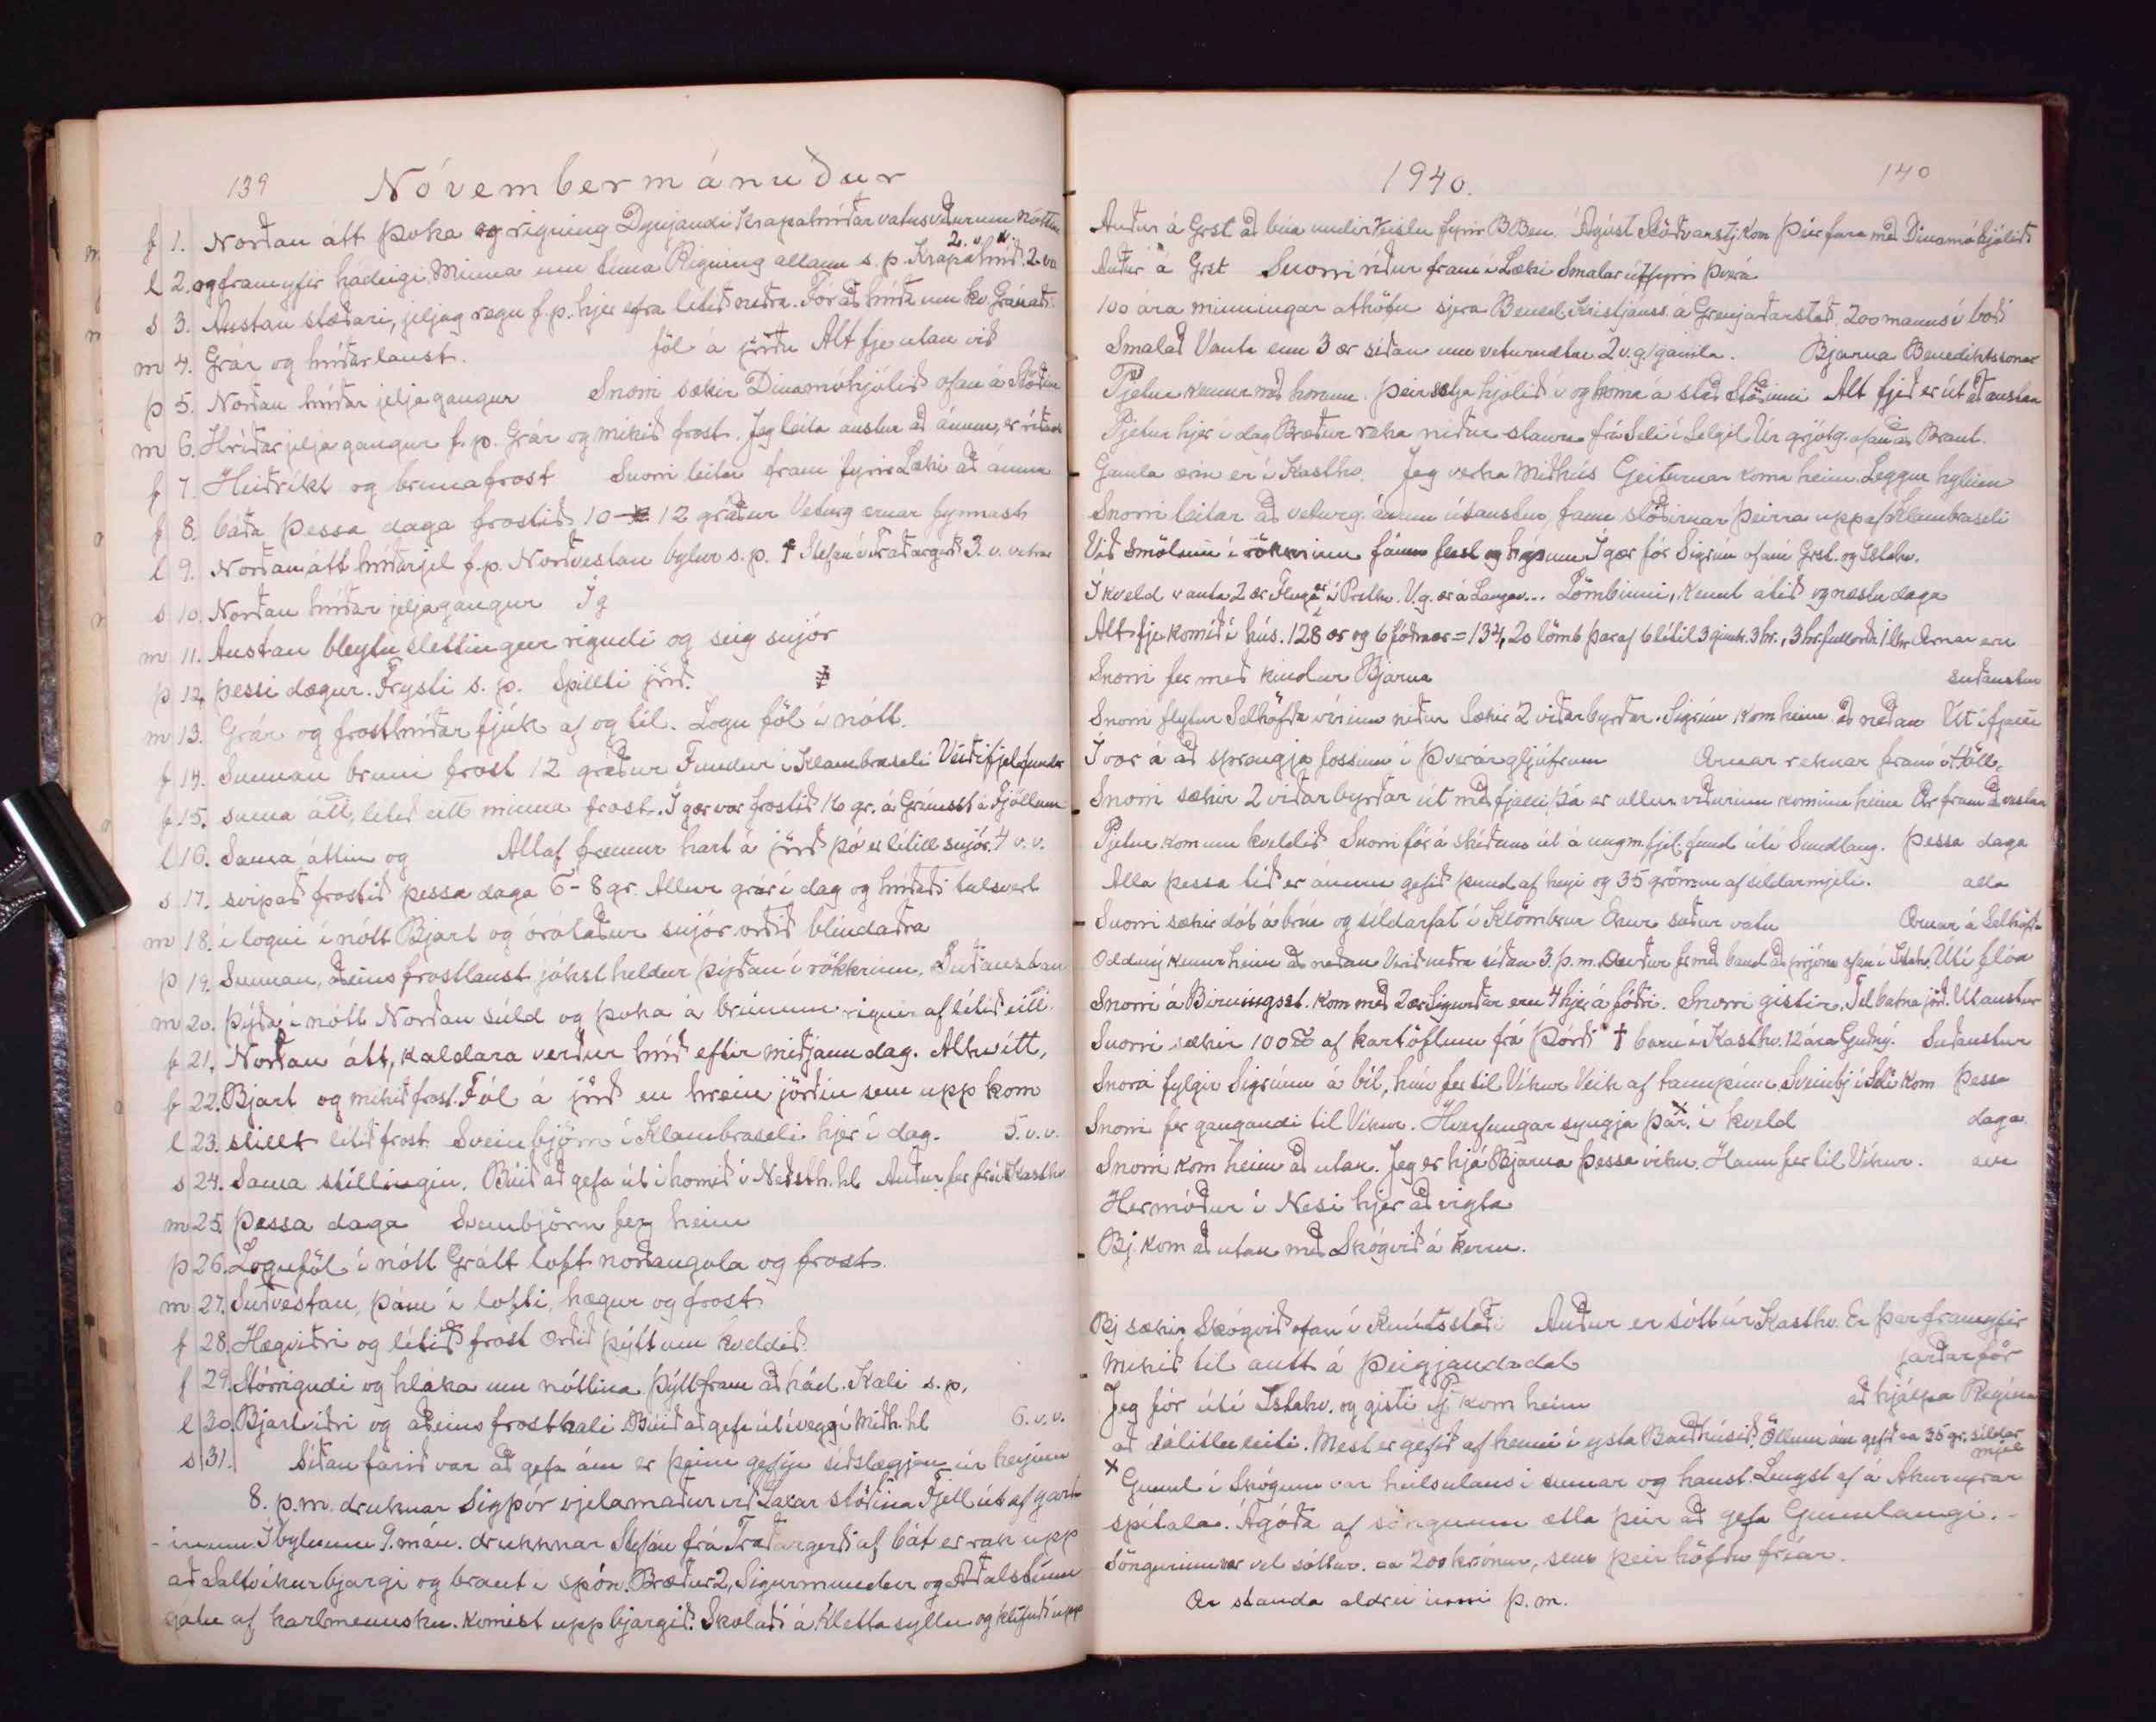 139 Nóvembermánuður
f 1. Norðan átt þoka og rigning Dynjandi krapahríðar vatnsveðurum nóttina
l 2. og framyfir hádeigi. Minna um tíma Rigning allann s.p. Krapahríð. 2. v. v.
s 3. Austan slæðari, jeljag regn f.p. hjer efra lítið neðra. Fór að hríða um kv. Gránaði
m 4. Grár og hríðarlaust. föl á jörðu Alt fje utan við
þ 5. Norðan hríðar jeljagangur Snorri sækir Dinamóhjólið ofan á Stöðina
m 6. Hríðarjeljagangur f.p. Grár og mikið frost. Jeg leita austur að ánum, er
f 7. Heiðríkt og brunafrost Snorri leitar fram fyrir Læki að ánum
f 8. báða þessa daga frostið 10 - 12 gráður Veturg ærnar fynnast
l 9. Norðan átt hríðarjel f.p. Norðvestan bylur s.p. † Stefán í Traðargerði 3. v. vetrar
s 10. Norðan hríðar jeljagangur Í g
m 11. Austan bleytu slettingur rigndi og seig snjór
þ 12. þessi dægur. Frysti s.p. Spillti jörð.
m 13. Grár og frosthríðar fjúk af og til. Logn föl í nótt.
f 14. Sunnan bruni frost 12 gráður Fundur í Klambraseli Veiðifjelfundur
f 15. sama átt, lítið eitt minna frost. Í gær var frostið 16 gr. á Grímsst á Fjöllum
l 16. Sama áttin og Altaf fremur hart á jörð þó er lítill snjór. 4 v. v.
s 17. svipað frostið þessa daga 6-8 gr. Allur grár í dag og hríðaði talsvert
m 18. í logni í nótt Bjart og órólaður snjór orðið blindaðra
þ 19. Sunnan, aðeins frostlaust jókst heldur þýðan í rökkrinu. Suðaustan
m 20. þýða í nótt Norðan súld og þoka á brúnum rignir af lítið eitt
f 21. Norðan átt, kaldara verður hríð eftir miðjann dag. Alhvítt,
f 22. Bjart og mikið frost. Föl á jörð en hrein jörðin sem upp kom
l 23. stillt lítið frost. Sveinbjörn í Klambraseli hjer í dag. 5. v. v.
s 24. Sama stillingin. Búið að gefa út í hornið í Neðsth. hl Auður fer frá Kasthv
m 25. þessa daga Sveinbjörn fer heim
þ 26. Lognföl í nótt Grátt loft norðangola og frost.
m 27. Suðvestan, þám í lofti, hægur og frost
f 28. Hægviðri og lítið frost orðið þýtt um kveldið.
f 29. Stórrigndi og hláka um nóttina. Þýtt fram að hád. Kali s.p.
l 30. Bjartviðri og aðeins frostkali Búið að gefa út í vegg í Miðh. hl 6. v. v.
s 31. Síðan farið var að gefa ám er þeim gefin síðslægjan úr heyinu
8. þ.m. druknar Sigþór vjelamaður við Laxár stöðina Fjell út af garð
inum Í bylnum 9. mán. drukknar Stefán frá Traðargerði af bát er rak upp
að Saltvíkurbjargi og braut í spón. Bræður 2, Sigurmundur og Aðalsteinn
gátu af karlmennsku. komist upp bjargið. Skolaði á klettasyllu og klifruðu upp
1940. 140
Auður á Grst að búa undir veislu fyrir B Ben. Ágúst Stöðvarstj kom Þeir fara með Dinamóhjólið
Auður á Grst. Snorri ríður fram í Læki Smalar út fyrir Þverá
100 ára minningar athöfn sjera Bened. Kristjánss. á Grenjaðarstað. 200 manns í boði
Smalað Vanta enn 3 ær síðan um veturnætur 2 v.g. 1 gamla. Bjarna Benediktssonar
Pjetur kemur með honum. Þeir setja hjólið í og koma á stað Stöðinni Alt fjeð er út að austan
Pjetur hjer í dag Bræður raka niður staura frá Seli í Selgil Úr grjótg. ofan á Braut.
Gamla ærin er í Kasthv. Jeg verka Miðhús Geiturnar koma heim. Leggur hylinn
Snorri leitar að veturg. ánum útaustur, fann slóðirnar þeirra uppaf Klambraseli
Við Smölum í rökkrinu fáum flest og hýsum Í gær fór Sigrún ofaní Grst. og Ístahv.
Í kveld vanta 2 ær Fluga er í Presthv. V.g. ær á Langav... Lömbunni, kennt átið og næstu daga
Alt fje komið í hús. 128 ær og 6 fóðraær = 134, 20 lömb þaraf 6 lítil 3 gimb. 3 hr., 3 hr. fullorðn. 1 lhr. Ærnar eru
Snorri fer með kindur Bjarna suðaustur
Snorri flytur Selhöfða vírinn niður Sækir 2 viðarbyrðar. Sigrún kom heim að neðan Út í fjalli
Í var á að sprengja fossinn í Þverárgljúfrum Ærnar reknar fram í Höll.
Snorri sækir 2 viðarbyrðar út með fjalli, þá er allur viðurinn kominn heim Ær fram að vestan
Pjetur kom um kveldið Snorri fór á skíðum út á ungm.fjel. fund úti Sundlaug. þessa daga
Alla þessa tíð er ánum gefið pund af heyi og 35 grömm af síldarmjeli. alla
Snorri sækir dót á brú og síldarfat í Klömbrur Ekur suður vatn Ærnar á Selhöfða
Oddný kemur heim að neðan Verið neðra síðan 3. þ.m. Auður fer með band að prjóna ofan í Ístahv. Úti flóa
Snorri á Birningsst. kom með 2 ær Sigurðar eru 4 hjer á fóðri. Snorri gistir. Tel batna jörð. Útaustur
Snorri sækir 100 ℔ af kartöflum frá Þórði † barn í Kasthv. 12 ára Guðný. Suðaustur
Snorri fylgir Sigrúnu á bíl, hún fer til Víkur Veik af tannpínu Sveinbj í Seli kom þessa
Snorri fer gangandi til Víkur. Hverfungar syngja þar x í kveld daga
Snorri kom heim að utan. Jeg er hjá Bjarna þessa viku. Hann fer til Víkur.
Hermóður í Nesi hjer að vigta
Bj. kom að utan með Skógvið á kerru.
Bj sækir Skógvið ofan í Knútsstaði Auður er sótt úr Kasthv. Er þar framyfir
Mikið til autt á Þeigjandadal jarðarför
Jeg fór úti Ístahv. og gisti Pj. kom heim að hjálpa Regínu
að sálitlu leiti. Mest er gefið af henni í ysta Baðhúsið. Öllum ám gefið ca 35 gr. síldar mjel
x Gunnl í Skógum var heilsulaus í sumar og haust. Lengst af á Akureyrar
spítala. Ágóða af söngnum ætla þeir að gefa Gunnlaugi.
Söngurinn var vel sóttur. ca 200 krónur, sem þeir höfðu fríar.
Ær standa aldrei inni þ.m.